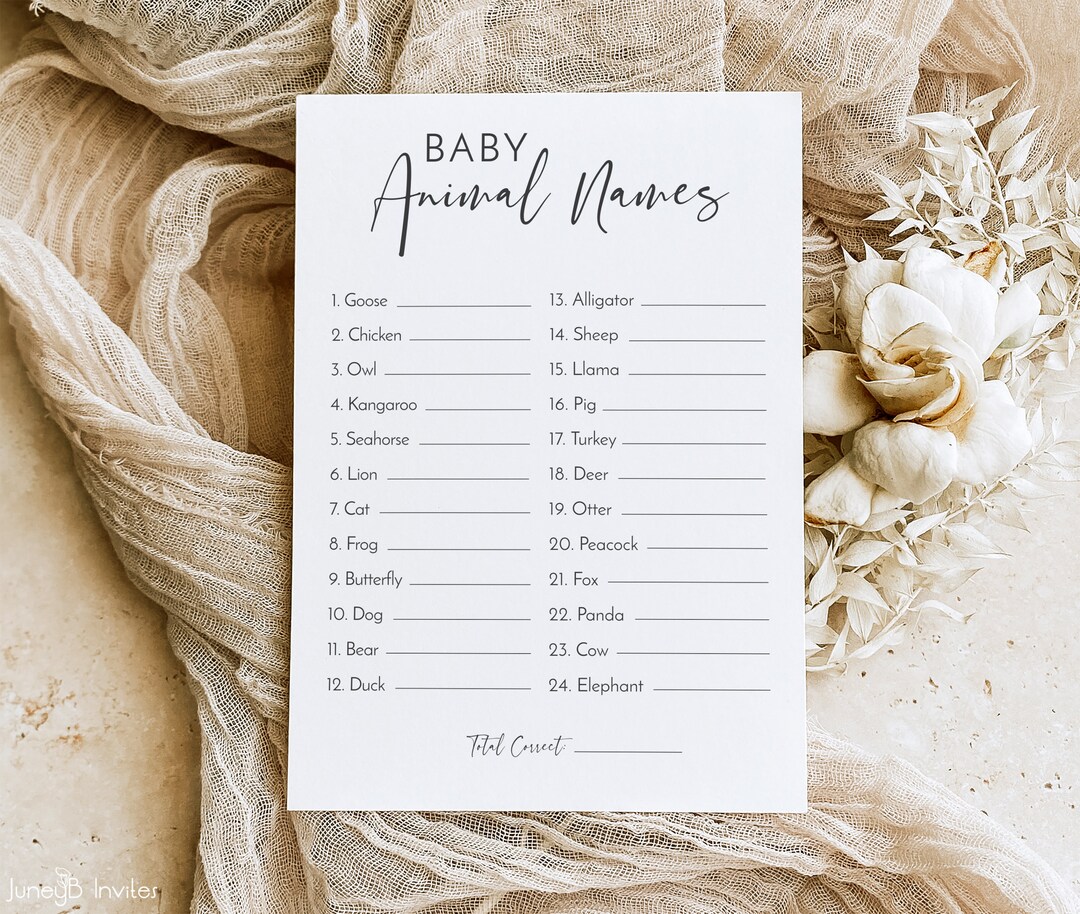 BABY
Animal Names
1. Goose
2. Chicken
3. Owl
4. Kangaroo
5. Seahorse
6. Lion
7. Cat
8. Frog
9. Butterfly
10. Dog
11. Bear
12. Duck
13. Alligator
14. Sheep
15. Llama
16. Pig
17. Turkey
18. Deer
19. Otter
20. Peacock
21. Fox
22. Panda
23. Cow
24. Elephant
Total Correct:
JuneyB Invites